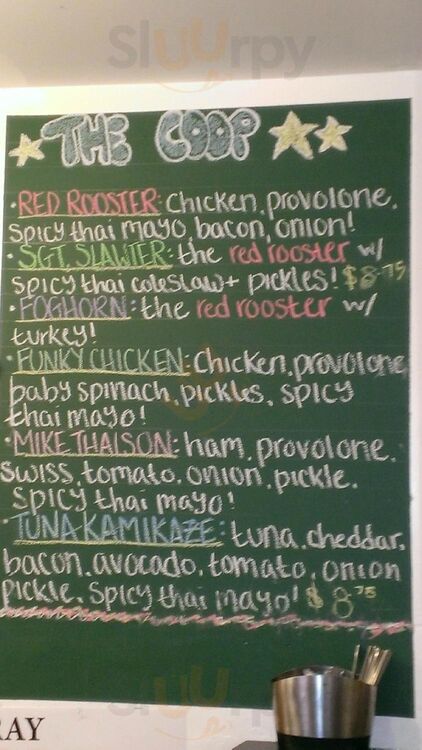 Sluurpy
THE COOP
• RED ROOSTER: Chicken, provolone,
spicy thai mayo, bacon, onion!
• SGT. SLAWTER: the red rooster w/
spicy thai coleslaw + pickles! $8.75
• FOGHORN: the red rooster w/
turkey!
• FUNKY CHICKEN: Chicken, provolone,
baby spinach, pickles, spicy
thai mayo!
• MIKE THAISON: ham, provolone,
swiss, tomato, onion, pickle,
spicy thai mayo!
• TUNA KAMIKAZE: tuna, cheddar,
bacon, avocado, tomato, onion
pickle, spicy thai mayo! $8.75
RAY